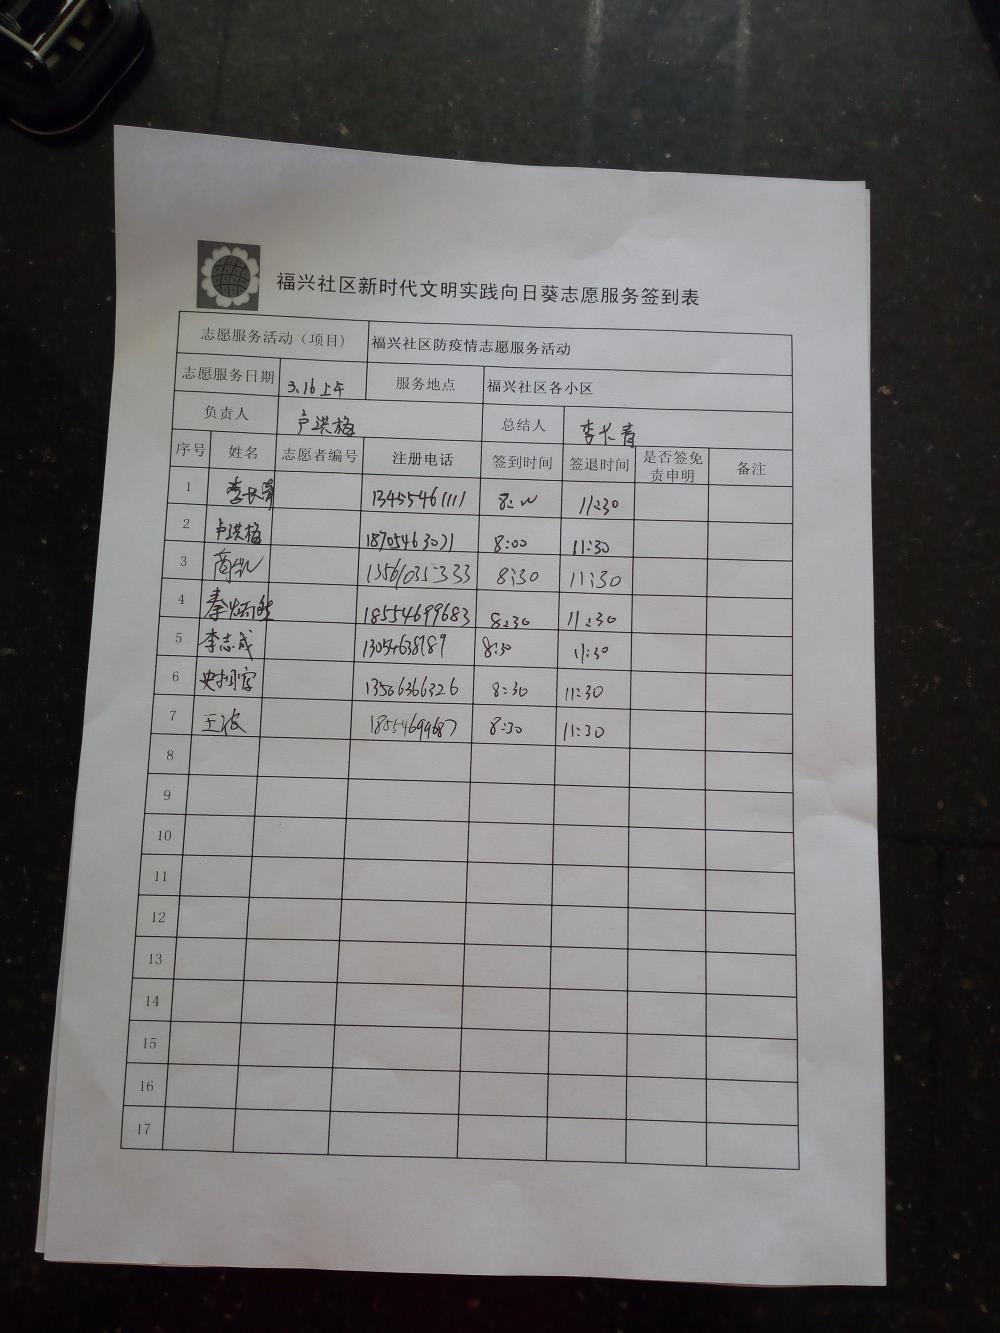 福兴社区新时代文明实践向日葵志愿服务签到表
志愿服务活动（项目） 福兴社区防疫情志愿服务活动
志愿服务日期 3.16上午 服务地点 福兴社区各小区
负责人 卢洪梅 总结人 李长青
序号 姓名 志愿者编号 注册电话 签到时间 签退时间 是否签免责申明 备注
1 李长青 13455461111 8:00 11:30
2 卢洪梅 18705463071 8:00 11:30
3 商凯 13561035333 8:30 11:30
4 秦炳 18554699683 8:30 11:30
5 李志成 13054638989 8:30 11:30
6 13506366326 8:30 11:30
7 王波 18554699687 8:30 11:30
8
9
10
11
12
13
14
15
16
17